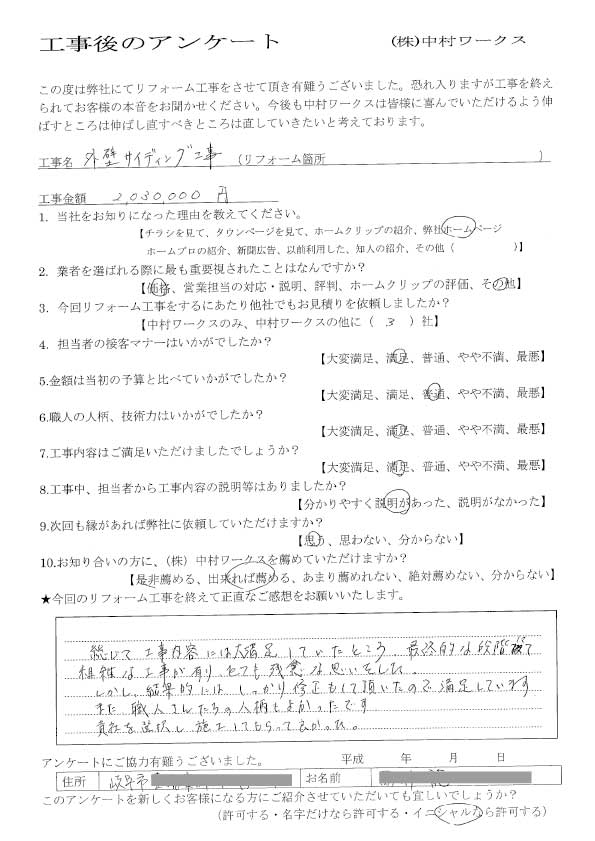 工事後のアンケート (株)中村ワークス
この度は弊社にてリフォーム工事をさせて頂き有難うございました。恐れ入りますが工事を終え
られてお客様の本音をお聞かせください。今後も中村ワークスは皆様に喜んでいただけるよう伸
ばすところは伸ばし直すべきところは直していきたいと考えております。
工事名 外壁サイディング工事 (リフォーム箇所 )
工事金額 2,030,000 円
1. 当社をお知りになった理由を教えてください。
【チラシを見て、タウンページを見て、ホームクリップの紹介、弊社ホームページ
ホームプロの紹介、新聞広告、以前利用した、知人の紹介、その他 ( )】
2. 業者を選ばれる際に最も重要視されたことはなんですか?
【価格、営業担当の対応・説明、評判、ホームクリップの評価、その他】
3. 今回リフォーム工事をするにあたり他社でもお見積りを依頼しましたか?
【中村ワークスのみ、中村ワークスの他に ( 3 ) 社】
4. 担当者の接客マナーはいかがでしたか?
【大変満足、満足、普通、やや不満、最悪】
5.金額は当初の予算と比べていかがでしたか?
【大変満足、満足、普通、やや不満、最悪】
6.職人の人柄、技術力はいかがでしたか?
【大変満足、満足、普通、やや不満、最悪】
7.工事内容はご満足いただけましたでしょうか?
【大変満足、満足、普通、やや不満、最悪】
8.工事中、担当者から工事内容の説明等はありましたか?
【分かりやすく説明があった、説明がなかった】
9.次回も縁があれば弊社に依頼していただけますか?
【思う、思わない、分からない】
10.お知り合いの方に、(株) 中村ワークスを薦めていただけますか?
【是非薦める、出来れば薦める、あまり薦めれない、絶対薦めない、分からない】
★今回のリフォーム工事を終えて正直なご感想をお願いいたします。
総じて工事内容には大満足していたところ、最終的な段階で
粗雑な工事が有り、とても残念な思いをした。
しかし、結果的にはしっかり修正もして頂いたので満足しています
また職人さんたちの人柄もよかったです
貴社を選択し施工してもらって良かった。
アンケートにご協力有難うございました。 平成 年 月 日
住所 岐阜市 お名前
このアンケートを新しくお客様になる方にご紹介させていただいても宜しいでしょうか?
(許可する・名字だけなら許可する・イニシャルなら許可する)